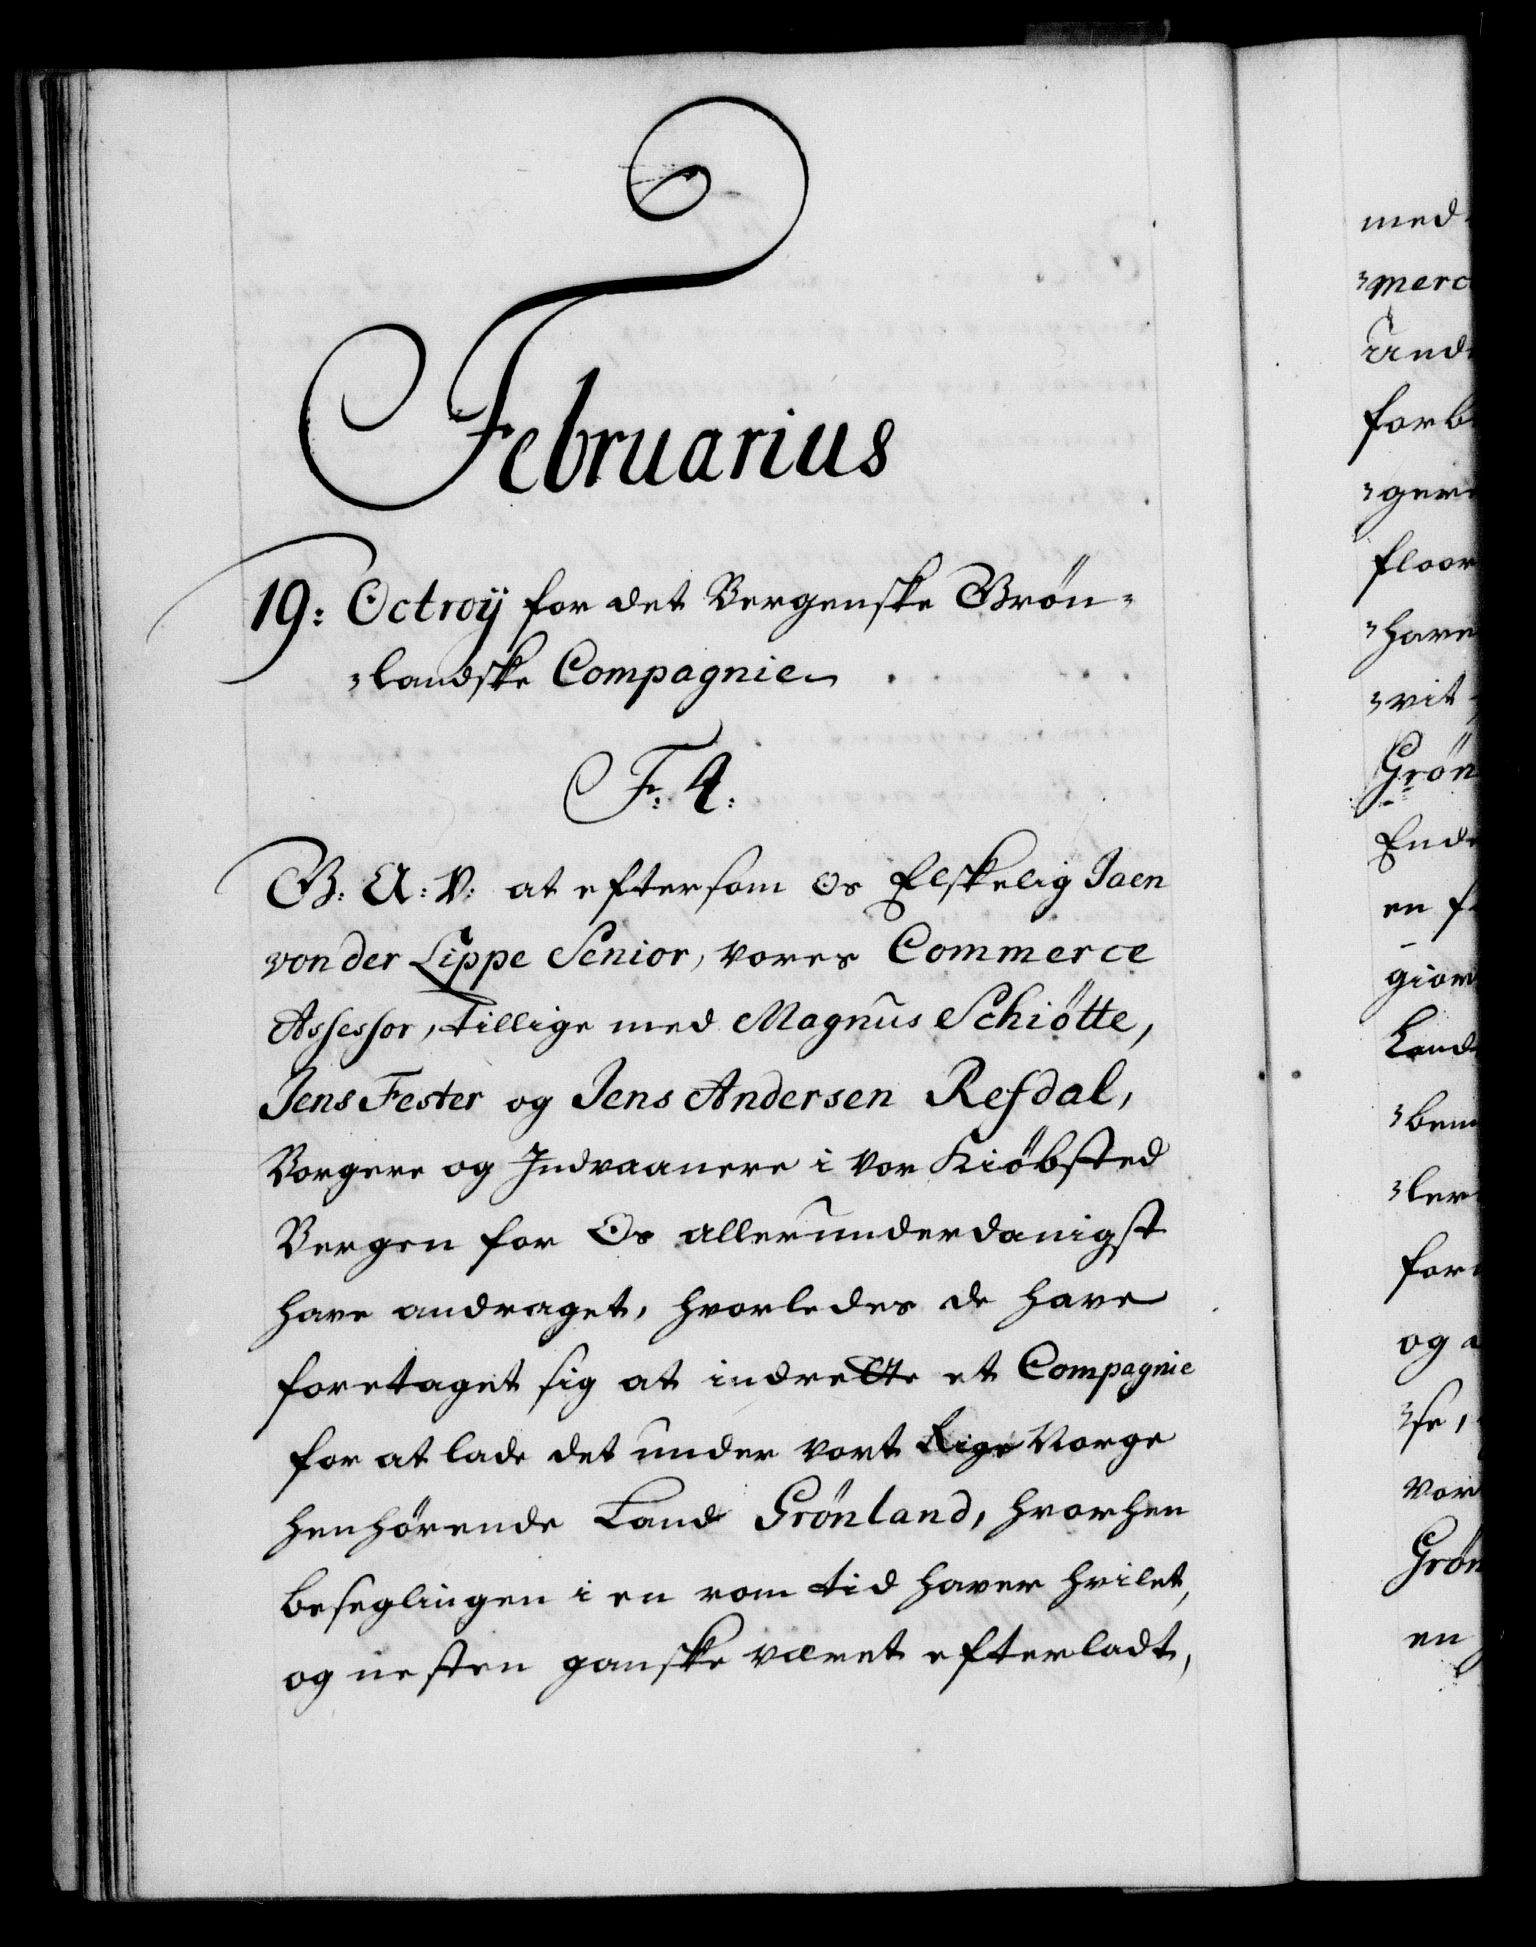 Februarius
19: Octroÿ for det Bergenske Grön=
=landske Compagnie
Fr: 4:
G: A: V: at eftersom Os Elskelig Jaen
von der Lippe Senior, vores Commerce
Assessor, tillige med Magnus Schiötte,
Jens Fester og Jens Andersen Refdal,
Borgere og Indvaanere i vor Kiöbsted
Bergen for Os allerunderdanigst
have andraget, hvorledes de have
foretaget sig at indrette et Compagnie
for at lade det under vort Rige Norge
henhörende Land Grönland, hvorhen
beseglingen i en rom tid haver hvilet,
og nesten ganske været efterladt,
med
=merc
Und
forb
=gere
floor
=have
=vit
Grön
Ende
en f
gior
Land
=bem
=ler
for
og a
=se,
vor
Grön
en